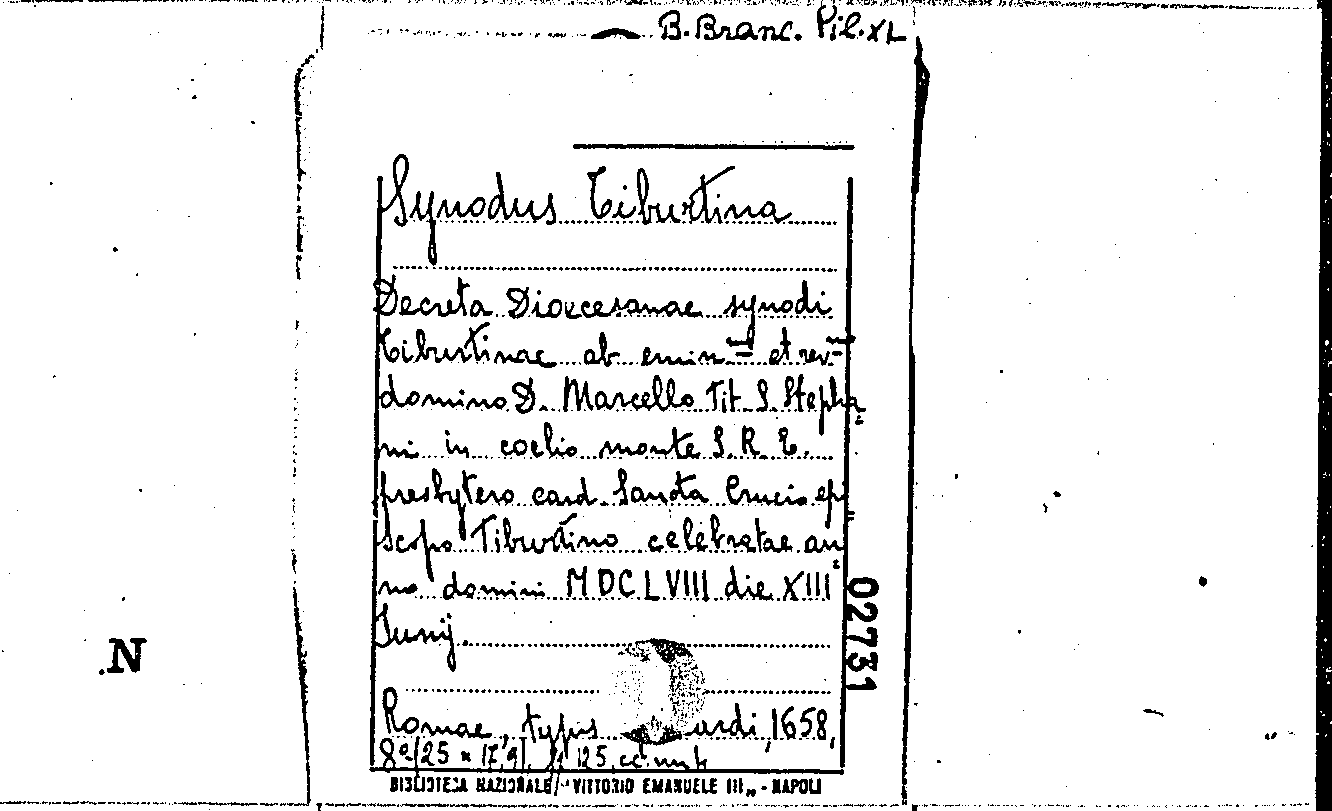 B. Branc. Pil. XL
Synodus Tiburtina
Decreta Dioecesanae synodi
Tiburtinae ab emin.mo et rev.mo
domino D. Marcello Tit. S. Stepha„
ni in coelio monte S. R. E.
presbytero card. Santa Crucio epi„
scopo Tiburtino celebratae an„
no domini MDCLVIII die XIII
Junij.
Romae, typis 1658,
8º (25 x 17,9). 125, cc. mnt
BIBLIOTECA NAZIONALE "VITTORIO EMANUELE III„ - NAPOLI
02731
N